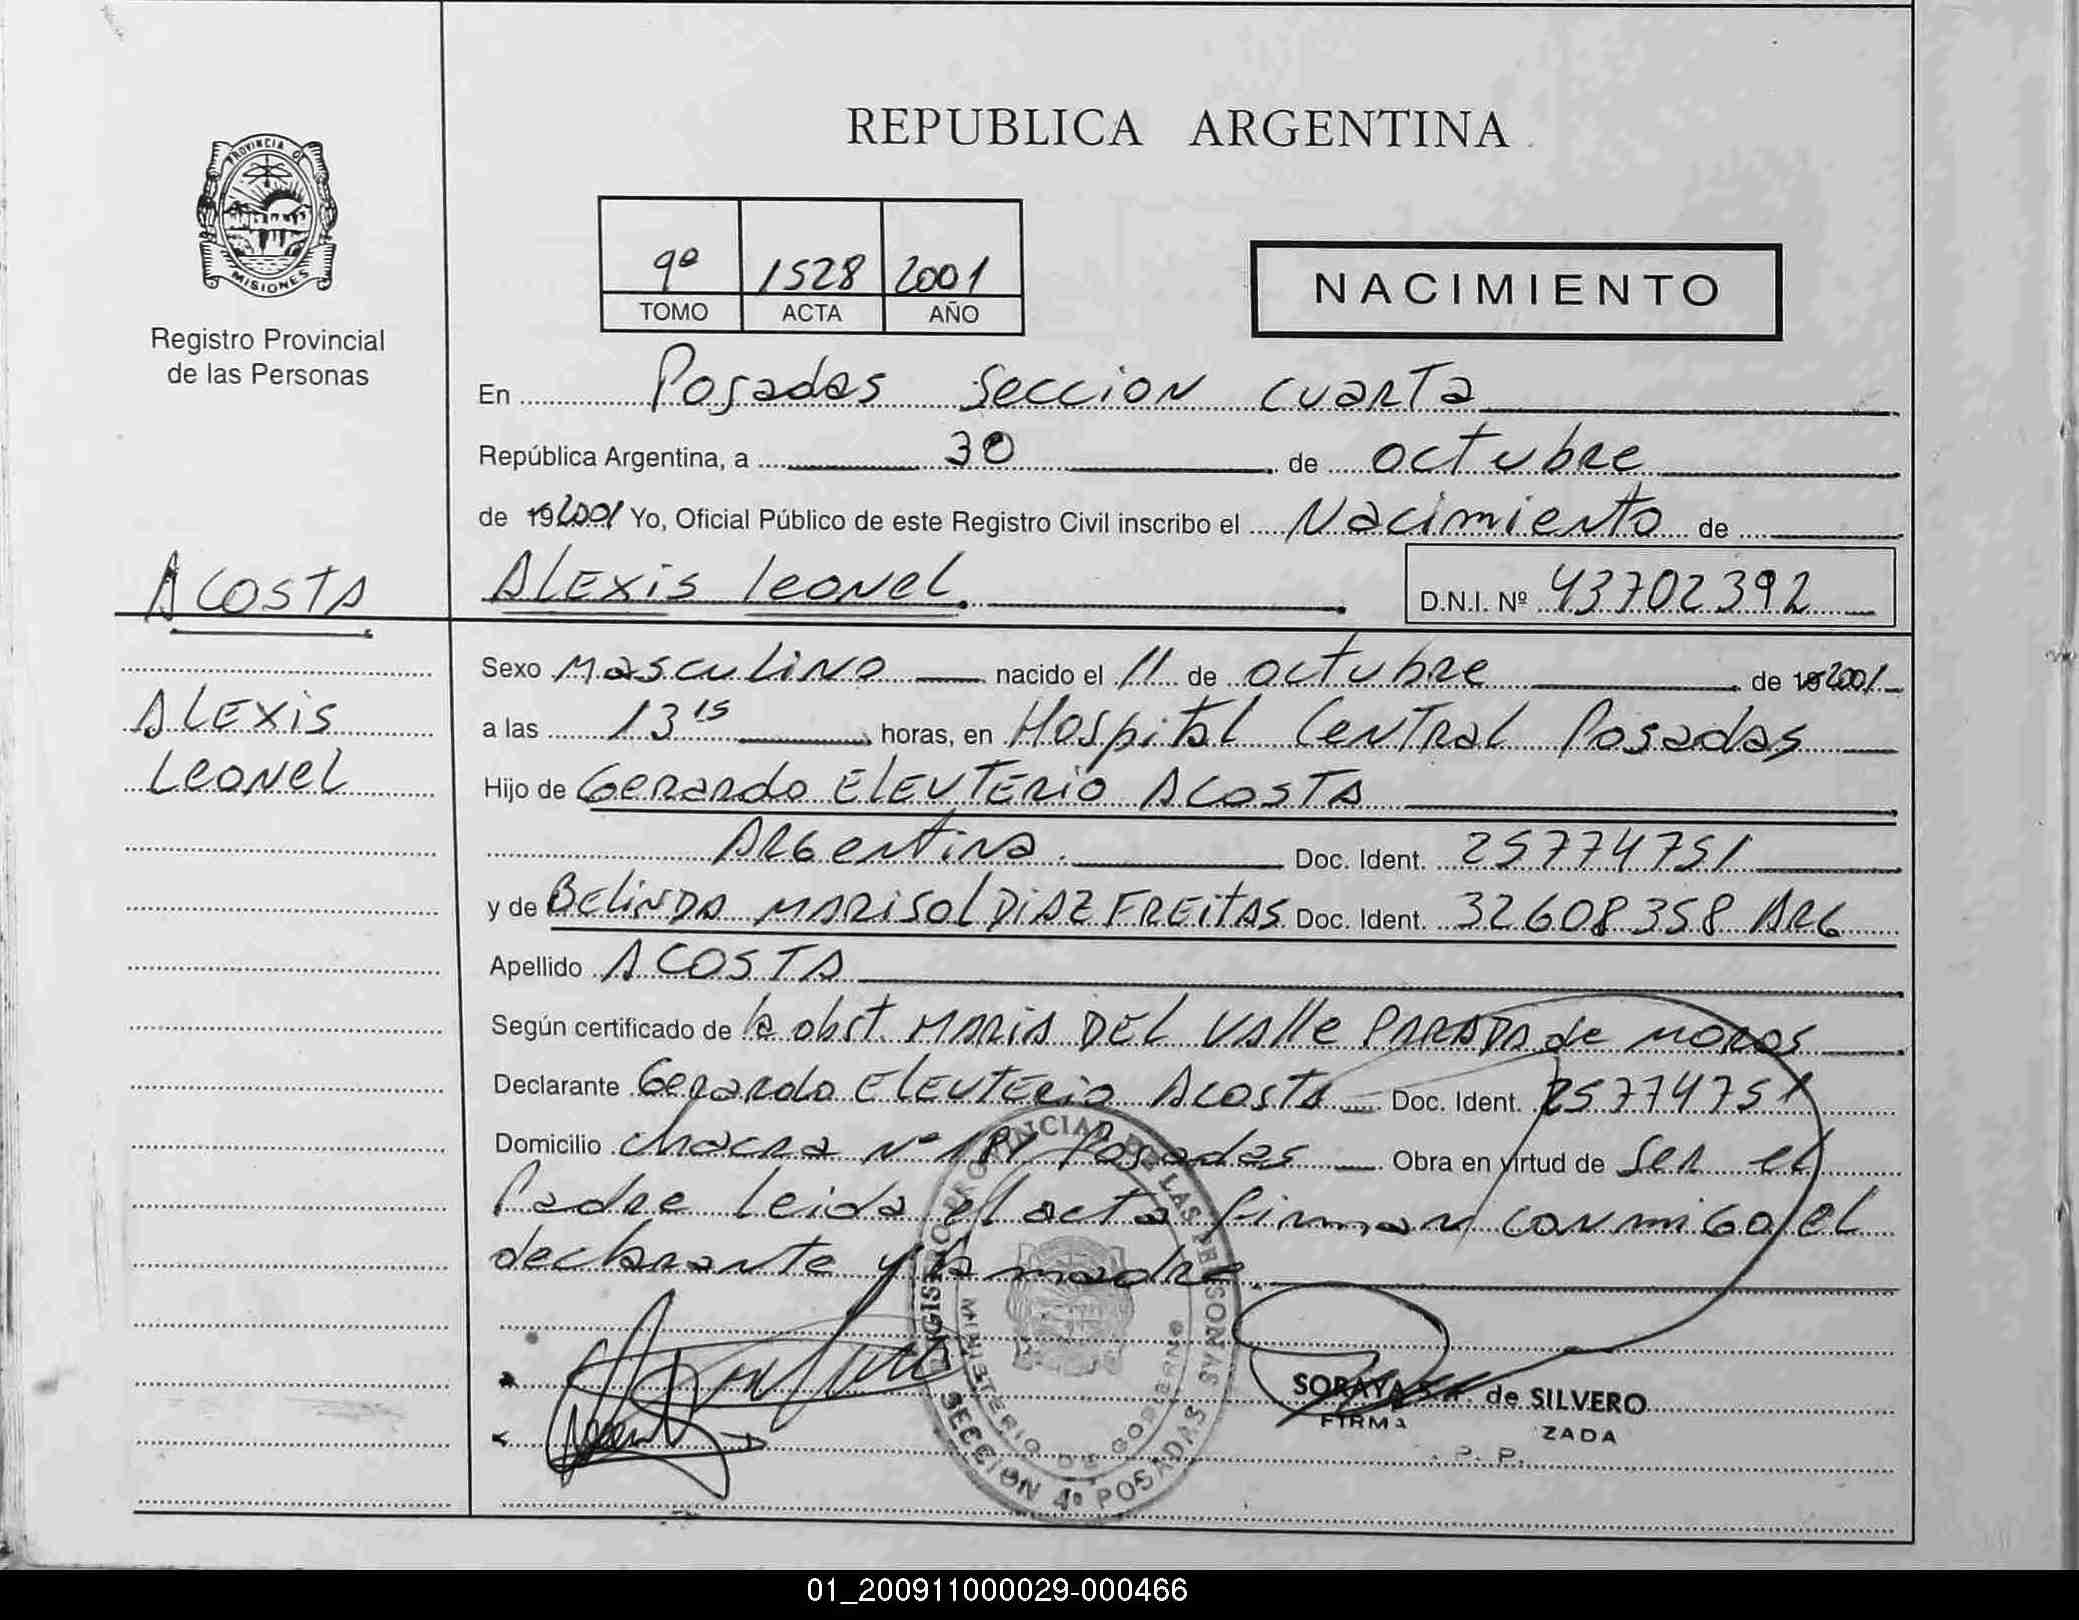 REPUBLICA ARGENTINA
PROVINCIA DE
MISIONES
Registro Provincial
de las Personas
9º 1528 2001
TOMO ACTA AÑO
NACIMIENTO
En Posadas Seccion cuarta
República Argentina, a 30 de octubre
de 19 2001 Yo, Oficial Público de este Registro Civil inscribo el Nacimiento de
ACOSTA
Alexis Leonel D.N.I. Nº 43702392
ALEXIS
Leonel
Sexo Masculino nacido el 11 de octubre de 19 2001
a las 13 15 horas, en Hospital Central Posadas
Hijo de Gerardo ELEUTERIO ACOSTA
Argentina. Doc. Ident. 25774751
y de BELINDA MARISOL DIAZ FREITAS Doc. Ident. 32608358 ARG
Apellido ACOSTA
Según certificado de la obst. MARIA DEL VAlle PARADA de MOROS
Declarante Gerardo ELEUTERIO Acosta Doc. Ident. 25774751
Domicilio chacra Nº 181 Posadas Obra en virtud de Ser el
Padre leida el acta firman conmigo el
declarante y la madre.
REGISTRO PROVINCIAL DE LAS PERSONAS
MINISTERIO DE GOBIERNO
SECCION 4º POSADAS
SORAYA de SILVERO
FIRMA ZADA
P. P.
01_200911000029-000466